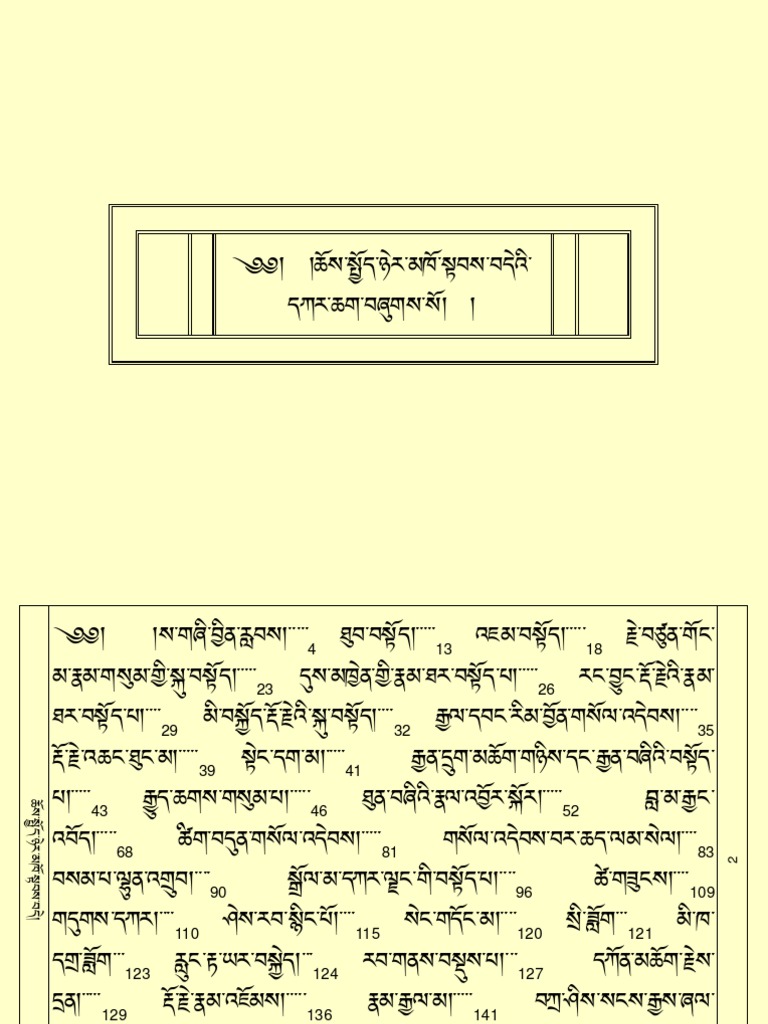 ༄༅། །ཆོས་སྤྱོད་ཉེར་མཁོ་སྟབས་བདེའི་
དཀར་ཆག་བཞུགས་སོ། །
༄༅། །ས་གཞི་བྱིན་རླབས།····· 4 ཐུབ་བསྟོད།····· 13 འཇམ་བསྟོད།····· 18 རྗེ་བཙུན་གོང་
མ་རྣམ་གསུམ་གྱི་སྐུ་བསྟོད།····· 23 དུས་མཁྱེན་གྱི་རྣམ་ཐར་བསྟོད་པ།····· 26 རང་བྱུང་རྡོ་རྗེའི་རྣམ་
ཐར་བསྟོད་པ།····· 29 མི་བསྐྱོད་རྡོ་རྗེའི་སྐུ་བསྟོད།···· 32 རྒྱལ་དབང་རིམ་བྱོན་གསོལ་འདེབས།···· 35
རྡོ་རྗེ་འཆང་ཐུང་མ།····· 39 སྟེང་དག་མ།····· 41 རྒྱན་དྲུག་མཆོག་གཉིས་དང་རྒྱན་བཞིའི་བསྟོད་
པ།····· 43 རྒྱུད་ཆགས་གསུམ་པ།····· 46 ཐུན་བཞིའི་རྣལ་འབྱོར་སྐོར།···· 52 བླ་མ་རྒྱང་
འབོད།····· 68 ཚིག་བདུན་གསོལ་འདེབས།····· 81 གསོལ་འདེབས་བར་ཆད་ལམ་སེལ།···· 83
བསམ་པ་ལྷུན་འགྲུབ།··· 90 སྒྲོལ་མ་དཀར་ལྗང་གི་བསྟོད་པ།···· 96 ཚེ་གཟུངས།···· 109
གདུགས་དཀར།···· 110 ཤེས་རབ་སྙིང་པོ།···· 115 སེང་གདོང་མ།···· 120 སྲི་ཟློག··· 121 མི་ཁ་
དགྲ་ཟློག··· 123 རླུང་རྟ་ཡར་བསྐྱེད།··· 124 རབ་གནས་བསྡུས་པ།··· 127 དཀོན་མཆོག་རྗེས་
དྲན།····· 129 རྡོ་རྗེ་རྣམ་འཇོམས།····· 136 རྣམ་རྒྱལ་མ།····· 141 བཀྲ་ཤིས་སངས་རྒྱས་ཞལ་
ཆོས་སྤྱོད་ཉེར་མཁོ་སྟབས་བདེ།
2